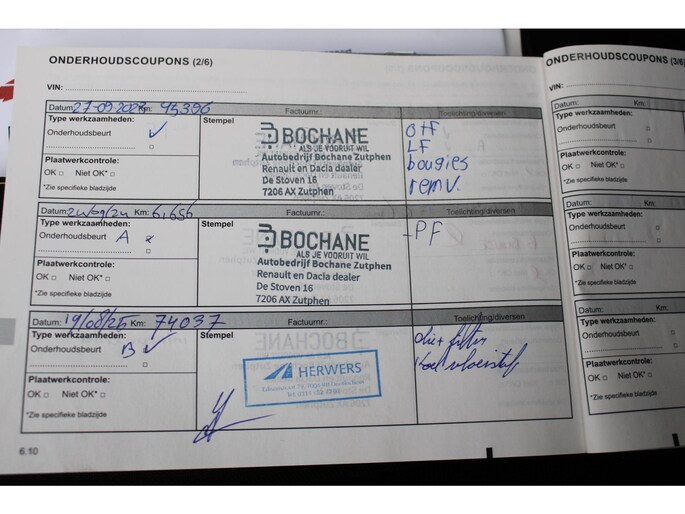 ONDERHOUDSCOUPONS (2/6)
VIN:
Datum: 27-09-2023 Km: 45396 Factuurnr.: Toelichting/diversen
Type werkzaamheden: Stempel
Onderhoudsbeurt ✓
BOCHANE
ALS JE VOORUIT WIL
Autobedrijf Bochane Zutphen
Renault en Dacia dealer
De Stoven 16
7206 AX Zutphen
OTF
LF
bougies
remv.
Plaatwerkcontrole:
OK □ Niet OK* □
*Zie specifieke bladzijde
Datum: 24/09/24 Km: 61,656 Factuurnr.: Toelichting/diversen
Type werkzaamheden: Stempel
Onderhoudsbeurt A x
BOCHANE
ALS JE VOORUIT WIL
Autobedrijf Bochane Zutphen
Renault en Dacia dealer
De Stoven 16
7206 AX Zutphen
-PF
Plaatwerkcontrole:
OK □ Niet OK* □
*Zie specifieke bladzijde
Datum: 19/08/25 Km: 74037 Factuurnr.: Toelichting/diversen
Type werkzaamheden: Stempel
Onderhoudsbeurt B ✓
HERWERS
olie + filter
koelvloeistof
Plaatwerkcontrole:
OK □ Niet OK* □
*Zie specifieke bladzijde
6.10
ONDERHOUDSCOUPONS (3/6)
VIN:
Datum: Km:
Type werkzaamheden:
Onderhoudsbeurt □
Plaatwerkcontrole:
OK □ Niet OK* □
*Zie specifieke bladzijde
Datum: Km:
Type werkzaamheden:
Onderhoudsbeurt □
Plaatwerkcontrole:
OK □ Niet OK* □
*Zie specifieke bladzijde
Datum: Km:
Type werkzaamheden:
Onderhoudsbeurt □
Plaatwerkcontrole:
OK □ Niet OK* □
*Zie specifieke bladzijde